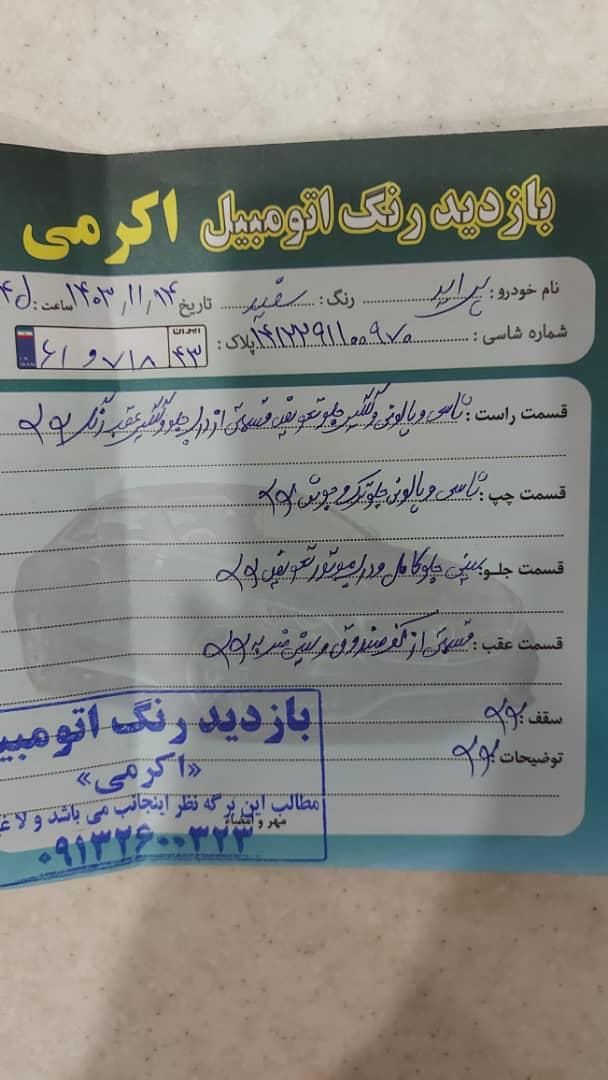 بازدید رنگ اتومبیل اکرمی
نام خودرو: پراید رنگ: سفید تاریخ ۱۴۰۳/۱۱/۱۴ ساعت:
شماره شاسی: ۱۴۱۲۲۹۱۱۰۰۹۷۰ پلاک:
ایران
۶۱ و ۷۱۸ ۴۳
قسمت راست: شاسی و پالونی و گلگیر جلو تعویض قسمتی از درب جلو و گلگیر عقب رنگ
قسمت چپ: شاسی و پالونی جلو ترک و جوش
قسمت جلو: سینی جلو کامل و درب موتور تعویض
قسمت عقب: قسمتی از کف صندوق و سینی ضربه
سقف:
توضیحات:
مهر و امضاء
بازدید رنگ اتومبی
«اکرمی»
مطالب این برگه نظر اینجانب می باشد و لا غ
۰۹۱۳۲۶۰۰۳۲۳